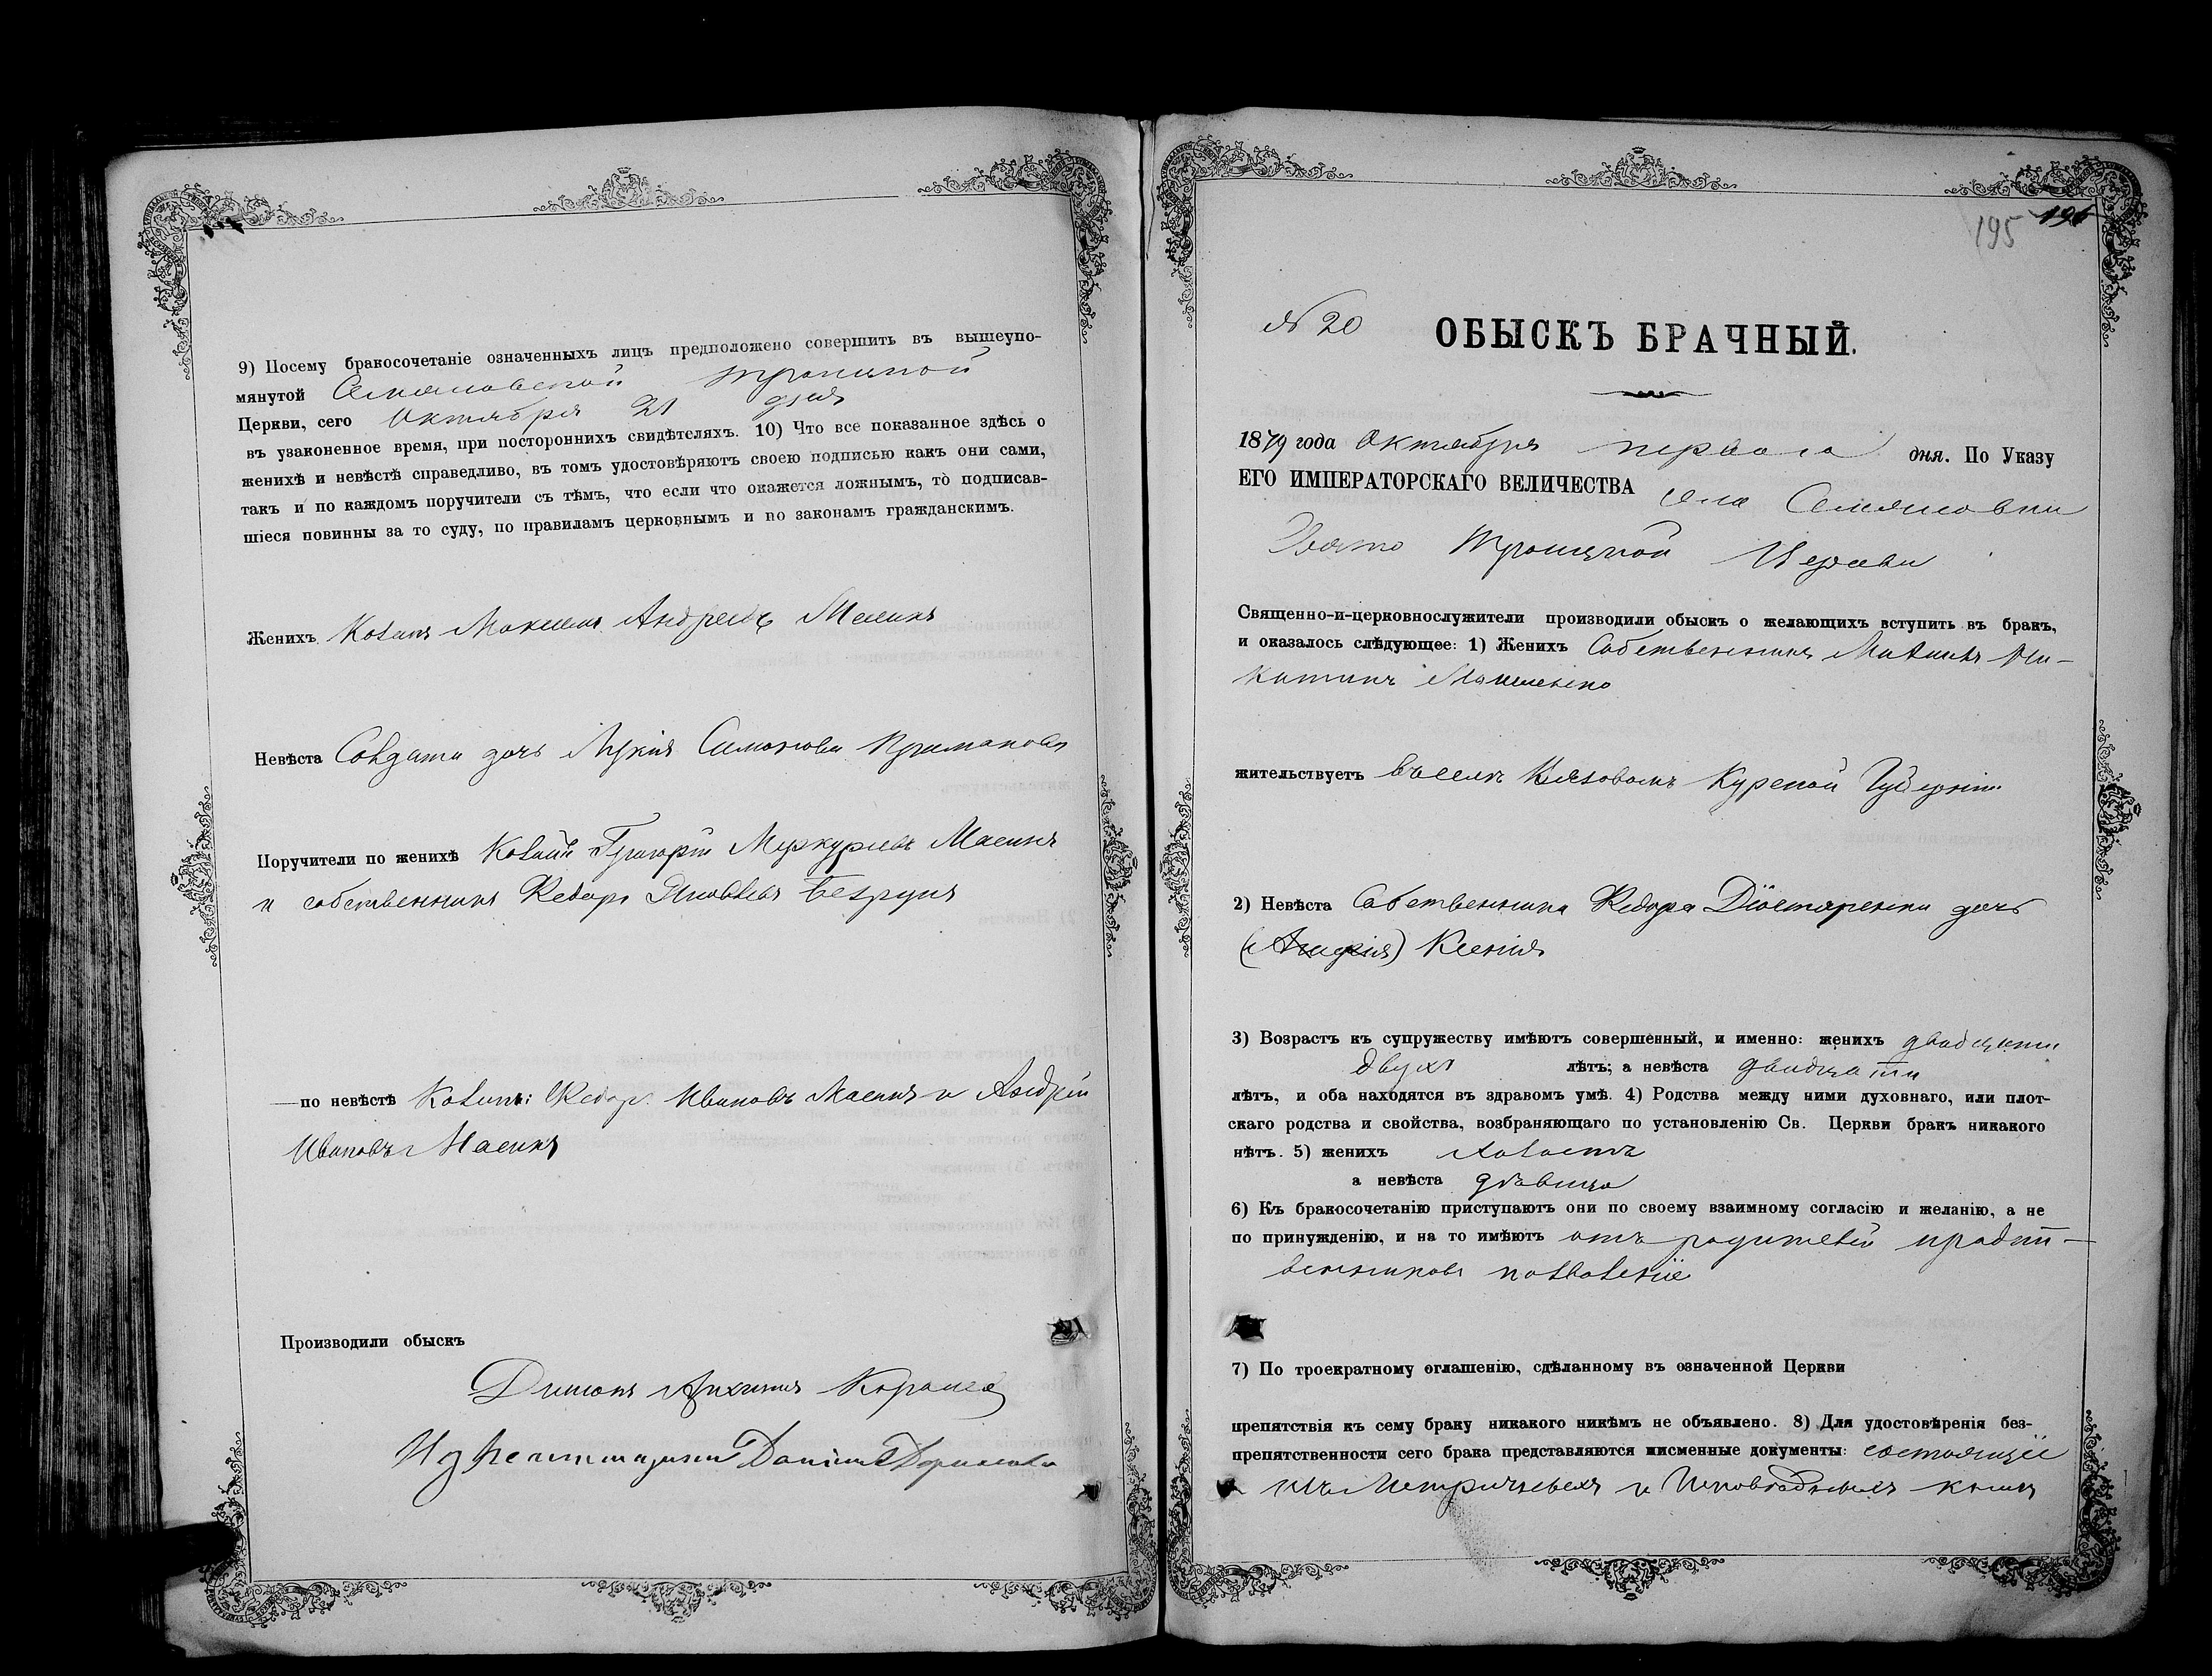 9) Посему бракосочетаніе означенныхъ лицъ предположено совершить въ вышеупо-
мянутой Семяновской Троицкой
Церкви, сего Октября 21 дня
въ узаконенное время, при постороннихъ свидѣтеляхъ. 10) Что все показанное здѣсь о
женихѣ и невѣстѣ справедливо, въ томъ удостовѣряютъ своею подписью какъ они сами,
такъ и по каждомъ поручители съ тѣмъ, что если что окажется ложнымъ, то подписав-
шіеся повинны за то суду, по правиламъ церковнымъ и по законамъ гражданскимъ.
Женихъ Козакъ Андреевъ Масикъ
Невѣста дочь Симонова
Поручители по женихѣ Козаки Григорій Меркурьевъ Масикъ
и собственникъ Ѳедоръ Яковлевъ Безрукъ
—по невѣстѣ Козаки: Ѳедоръ Ивановъ Масикъ и Андрей
Ивановъ Масикъ
Производили обыскъ
195
№ 20
ОБЫСКЪ БРАЧНЫЙ.
1879 года Октября перваго дня. По Указу
ЕГО ИМПЕРАТОРСКАГО ВЕЛИЧЕСТВА села Семяновки
Свято Троицкой Церкви
Священно-и-церковнослужители производили обыскъ о желающихъ вступить въ бракъ,
и оказалось слѣдующее: 1) Женихъ Собственникъ Ни-
китинъ
жительствуетъ въ селѣ Курской Губерніи
2) Невѣста Собственника Ѳедора дочь
Ксенія
3) Возрастъ къ супружеству имѣютъ совершенный, и именно: женихъ двадцати
двухъ лѣтъ; а невѣста двадцати
лѣтъ, и оба находятся въ здравомъ умѣ. 4) Родства между ними духовнаго, или плот-
скаго родства и свойства, возбраняющаго по установленію Св. Церкви бракъ никакого
нѣтъ. 5) женихъ холостъ
а невѣста дѣвица
6) Къ бракосочетанію приступаютъ они по своему взаимному согласію и желанію, а не
по принужденію, и на то имѣютъ отъ родителей и родст-
венниковъ позволеніе
7) По троекратному оглашенію, сдѣланному въ означенной Церкви
препятствія къ сему браку никакого никѣмъ не объявлено. 8) Для удостовѣренія без-
препятственности сего брака представляются письменные документы: состоящіе
изъ Метрическихъ и Исповѣдныхъ книгъ